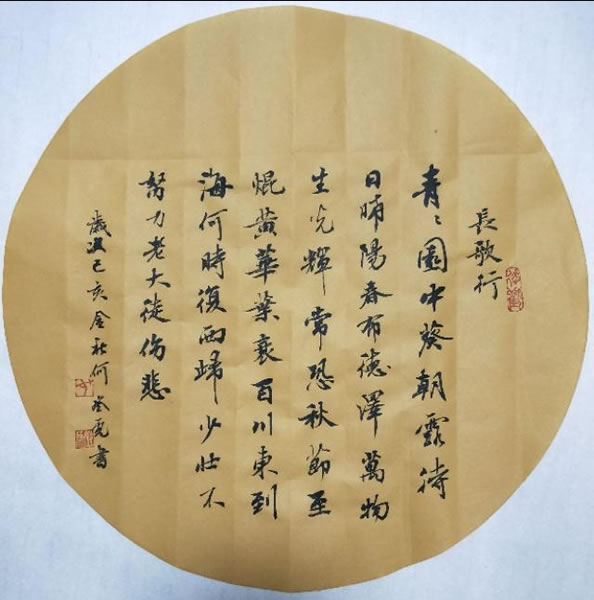 長歌行
青〻園中葵朝露待
日晞陽春布德澤萬物
生光輝常恐秋節至
焜黄華葉衰百川東到
海何時復西歸少壯不
努力老大徒伤悲
歲次己亥金秋何亮書